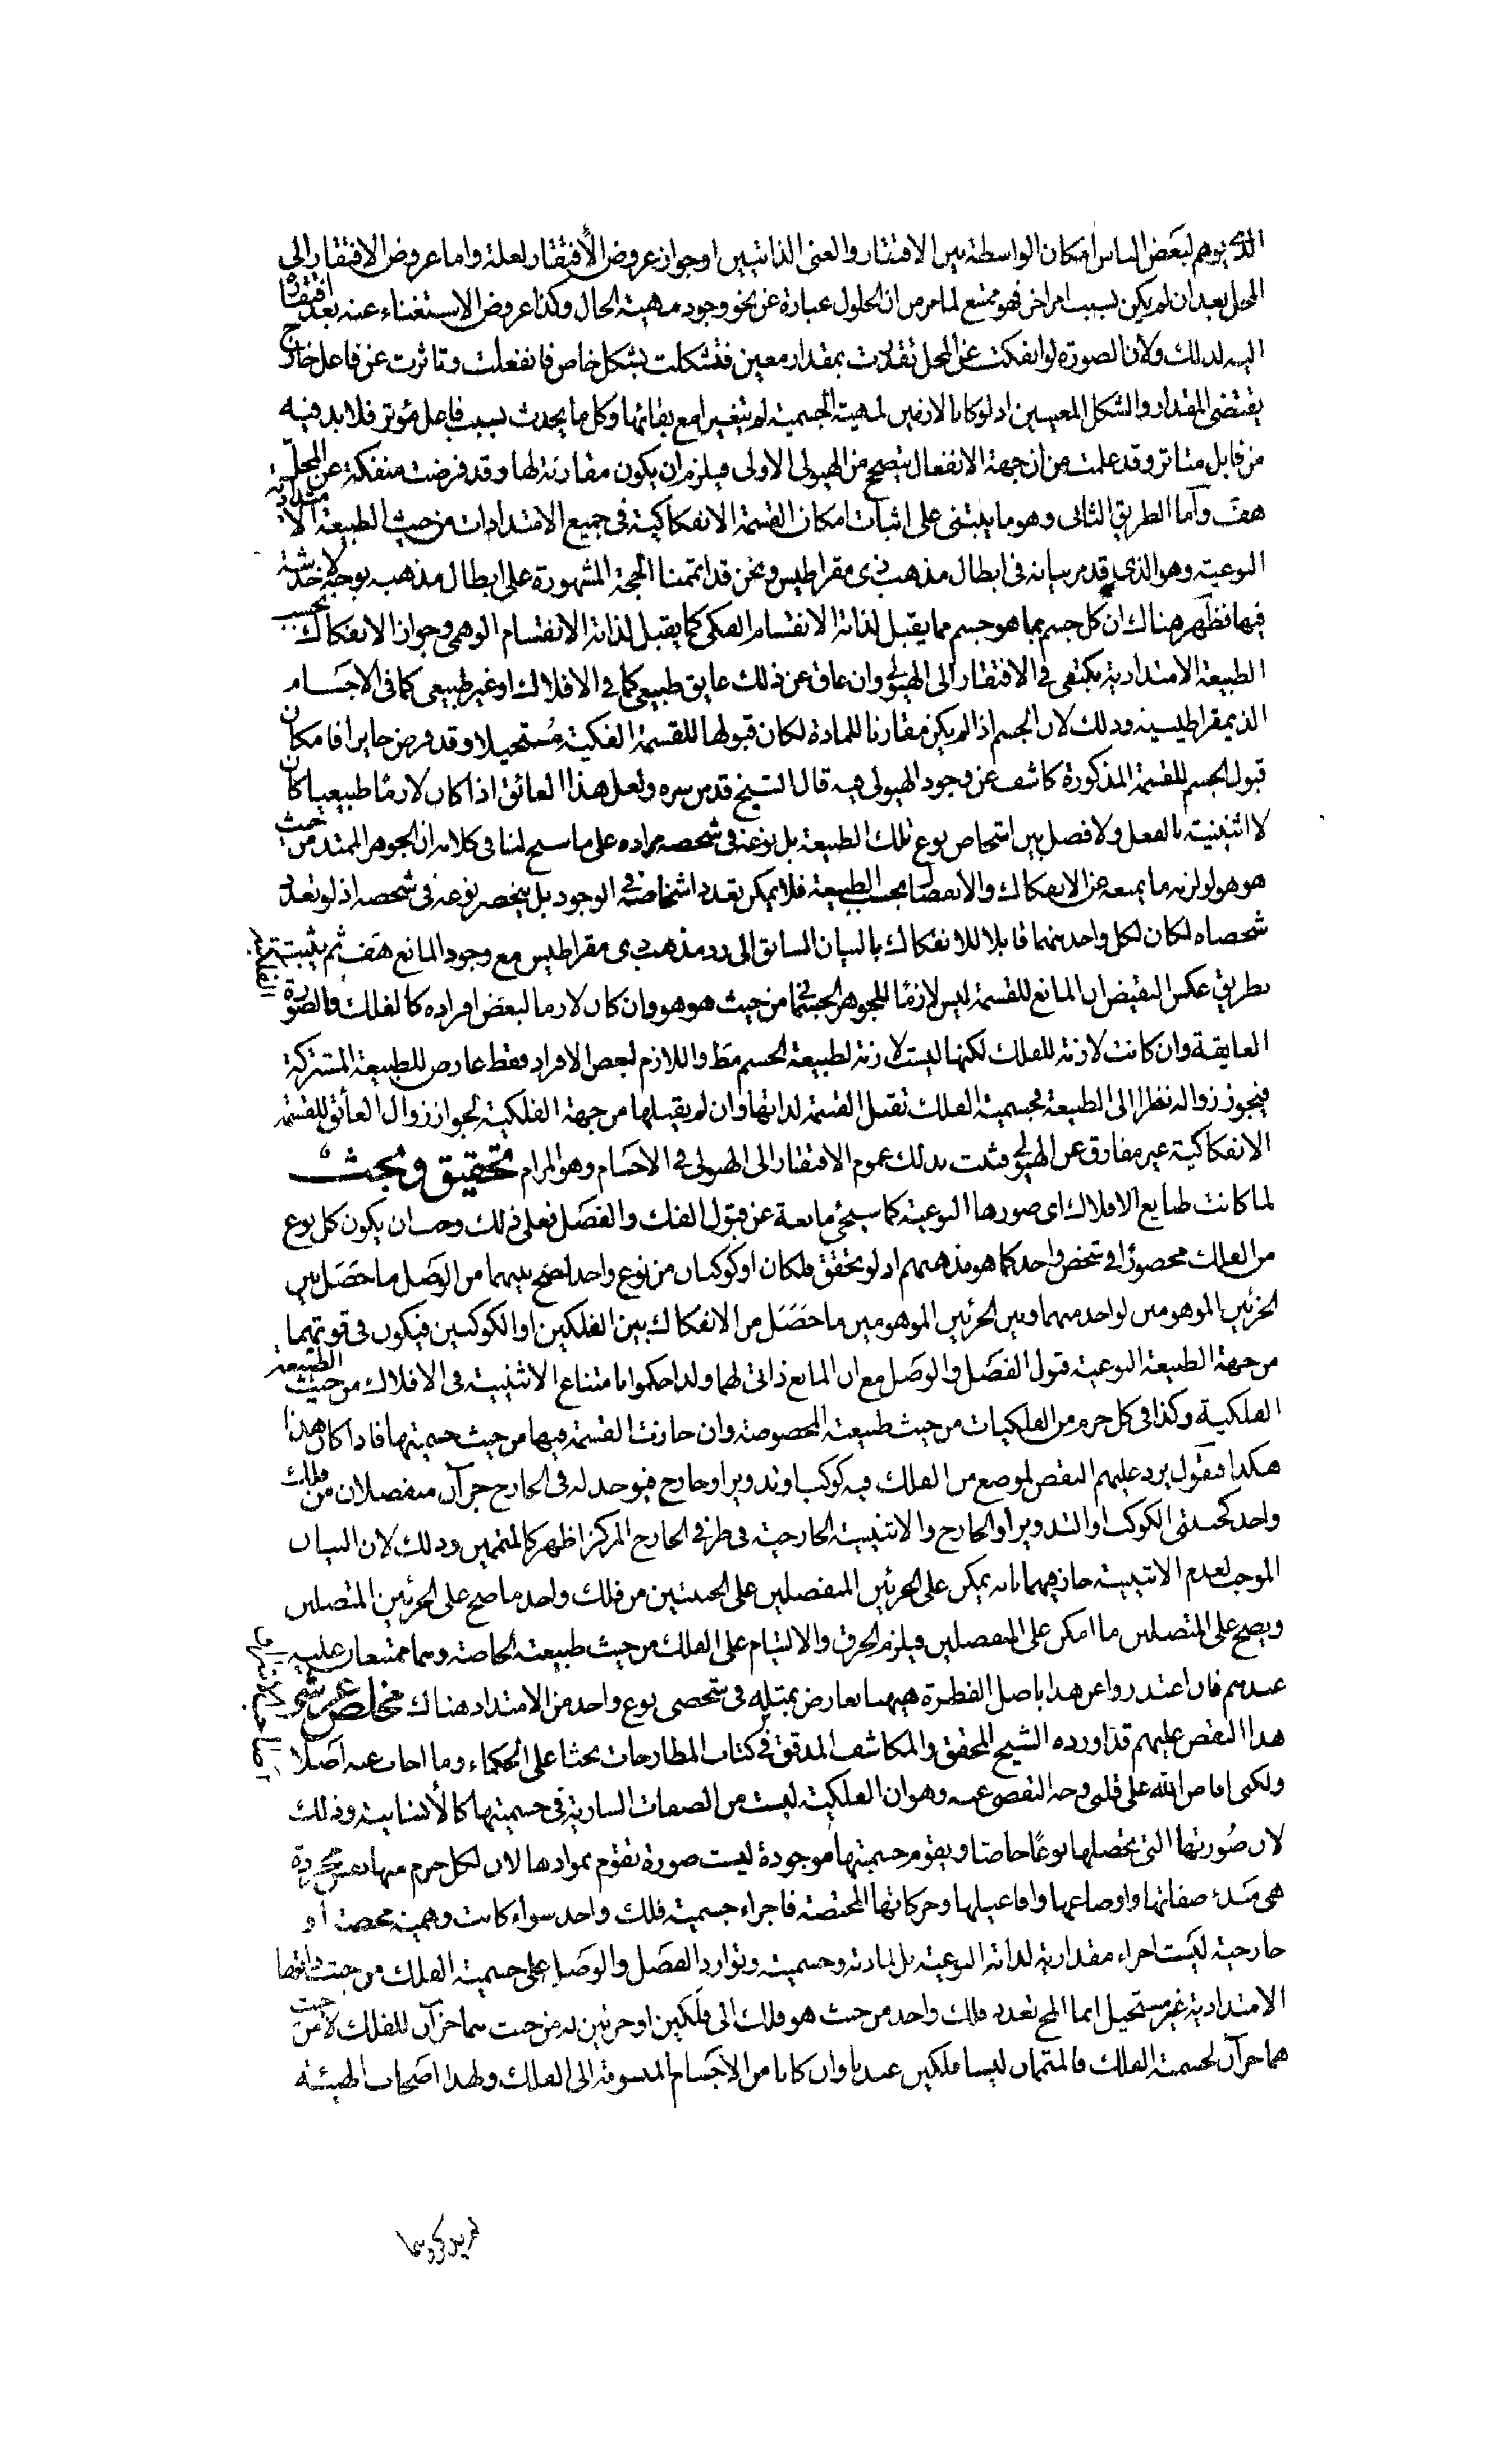 الذي يوهم لبعض الناس امكان الواسطة بين الافتقار والغنى الذاتيين او جواز عروض الافتقار لعلة واما عروض الافتقار الى
المحل بعد ان لم يكن بسبب امر اخر فهو ممتنع لما مر من ان الحلول عبارة عن نحو وجود مهية الحال وكذا عروض الاستغناء عنه بعد افتقارها
اليه لذلك ولان الصورة لو انفكت عن المحل تقدرت بمقدار معين فتشكلت بشكل خاص فانفعلت وتاثرت عن فاعل خارج
يقتضى المقدار والشكل المعينين اذ لو كانا لازمين لمهية الجسمية لم يتغيرا مع بقائها وكل ما يحدث بسبب فاعل مؤثر فلا بد فيه
من قابل متاثر وقد علمت من ان جهة الانفعال يتصحح من الهيولى الاولى فيلزم ان يكون مقارنة لها وقد فرضت منفكة عن المحل
هف وأما الطريق الثانى وهو ما يبتنى على اثبات امكان القسمة الانفكاكية فى جميع الامتدادات من حيث الطبيعة الامتدادية
النوعية وهو الذى قد مر بيانه فى ابطال مذهب ذى مقراطيس ونحن قد اتممنا الحجة المشهورة على ابطال مذهبه بوجه لا خدشة
فيها فظهر هناك ان كل جسم بما هو جسم مما يقبل لذاته الانقسام الفكى كما يقبل لذاته الانقسام الوهمى وجواز الانفكاك بحسب
الطبيعة الامتدادية يكتفى فى الافتقار الى الهيولى وان عاق عن ذلك عايق طبيعى كما فى الافلاك او غير طبيعى كما فى الاجسام
الذيمقراطيسية وذلك لان الجسم اذا لم يكن مقارنا للمادة لكان قبولها للقسمة الفكية مستحيلا وقد فرض جايرا فامكان
قبول الجسم للقسمة المذكورة كاشف عن وجود الهيولى فيه قال الشيخ قدس سره ولعل هذا العائق اذا كان لازمًا طبيعيا كان
لا اثنينية بالفعل ولا فصل بين اشخاص نوع تلك الطبيعة بل نوعه فى شخصه مراده على ما سبح لنا فى كلامه ان الجوهر الممتد من حيث
هو هو لو لزمه ما يمنعه عن الانفكاك والانفصال بحسب الطبيعة فلا يمكن تعدد اشخاصه فى الوجود بل ينحصر نوعه فى شخصه اذ لو تعدد
شخصاه لكان لكل واحد منهما قابلا للانفكاك بالبيان السابق الى رد مذهب ذى مقراطيس مع وجود المانع هف ثم يثبت
بطريق عكس النقيض ان المانع للقسمة ليس لازمًا للجوهر الجسمانى من حيث هو هو وان كان لازما لبعض افراده كالفلك والصورة الفلكية
العايقة وان كانت لازمة للفلك لكنها ليست لازمة لطبيعة الجسم مط واللازم لبعض الافراد فقط عارض للطبيعة المشتركة
فيجوز زواله نظرا الى الطبيعة فجسمية الفلك تقبل القسمة لذاتها وان لم يقبلها من جهة الفلكية لجواز زوال العائق للقسمة
الانفكاكية غير مفارق عن الهيولى فثبت بذلك عموم الافتقار الى الهيولى فى الاجسام وهو المرام تحقيق وبحث
لما كانت طبايع الافلاك اى صورها النوعية كما سيجئ مانعة عن قبول الفك والفصل فعلى ذلك وجب ان يكون كل نوع
من الفلك محصورًا فى شخص واحد كما هو مذهبهم اذ لو تحقق فلكان او كوكبان من نوع واحد لصح بينهما من الوصل ما حصل بين
الجزئين الموهومين لواحد منهما وبين الجزئين الموهومين ما حصل من الانفكاك بين الفلكين او الكوكبين فيكون فى قوتهما
من جهة الطبيعة النوعية قبول الفصل والوصل مع ان المانع ذاتى لهما ولذا حكموا بامتناع الاثنينية فى الافلاك من حيث الطبيعة
الفلكية وكذا فى كل جرم من الفلكيات من حيث طبيعته المخصوصة وان جازت القسمة فيها من حيث جسميتها فاذا كان هذا
هكذا فنقول يرد عليهم النقض لموضع من الفلك فيه كوكب او تدوير او خارج فيوجد له فى الخارج جزآن منفصلان من فلك
واحد كجنبتى الكوكب او التدوير او الخارج والاثنينية الخارجية فى طرفى الخارج المركز اظهر كالمتممين وذلك لان البيان
الموجب لعدم الاثنينية جار فيهما بانه يمكن على الجزئين المنفصلين على الجنبتين من فلك واحد ما صح على الجزئين المتصلين
ويصح على المتصلين ما امكن على المنفصلين فيلزم الخرق والالتيام على الفلك من حيث طبيعته الخاصة وهما ممتنعان عليه
عندهم فان اعتذروا عن هذا باصل الفطرة فيهما يعارض بمثله فى شخصى نوع واحد من الامتداد هناك مخلص عرشى
هذا النقض عليهم قد اورده الشيخ المحقق والمكاشف المدقق فى كتاب المطارحات بحثا على الحكماء وما اجاب عنه اصلا
ولكن افاض الله على قلبى وجه التفصى عنه وهو ان الفلكية ليست من الصفات السارية فى جسميتها كالانسانية وذلك
لان صورتها التى تحصلها نوعًا خاصا ويقوم جسميتها موجودة ليست صورة تقوم بموادها لان لكل جرم منها نفس مجردة
هى مبدء صفاتها واوضاعها وافاعيلها وحركاتها المختصة فاجزاء جسمية فلك واحد سواء كانت وهمية محضة او
خارجية ليست اجزاء مقدارية لذاته النوعية بل لمادته وجسميته وتوارد الفصل والوصل على جسمية الفلك من حيث ذاتها
الامتدادية غير مستحيل انما المح تعدد فلك واحد من حيث هو فلك الى فلكين او جزئين له من حيث هما جزآن للفلك لا من حيث
هما جزآن لجسمية الفلك فالمتممان ليسا فلكين عندنا وان كانا من الاجسام المنسوبة الى الفلك ولهذا اصحاب الهيئة